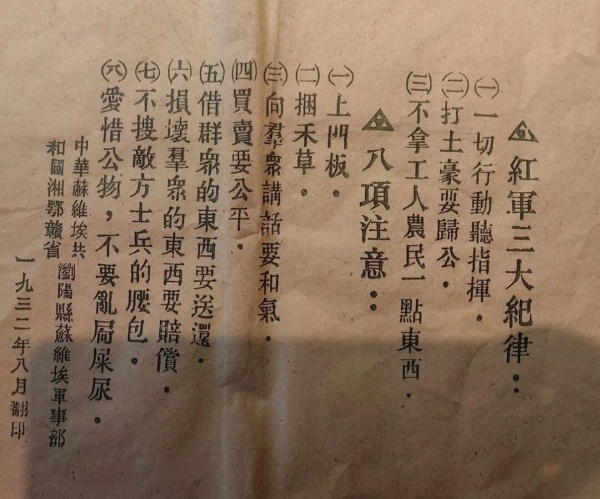 紅軍三大紀律：
㈠一切行動聽指揮．
㈡打土豪要歸公．
㈢不拿工人農民一點東西．
八項注意：
㈠上門板．
㈡捆禾草．
㈢向羣衆講話要和氣．
㈣買賣要公平．
㈤借群衆的東西要送還．
㈥損壞羣衆的東西要賠償．
㈦不搜敵方士兵的腰包．
㈧愛惜公物，不要亂屙屎尿．
中華蘇維埃共
和國湘鄂贛省
瀏陽縣蘇維埃軍事部
一九三二年八月翻印